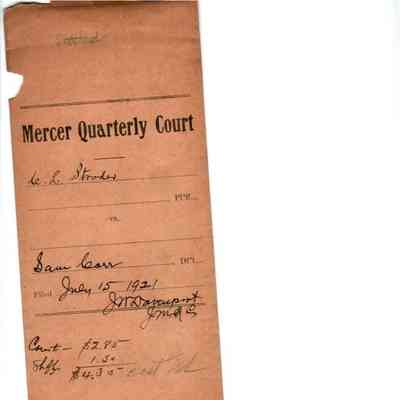 Settled
Mercer Quarterly Court
W. L. Strader
PFF.
vs.
Sam Carr DFT.
Filed July 15 1921
J W Davenport
J M Q C
Court — $2.85
Shff. 1.50
$4.35 cost pd